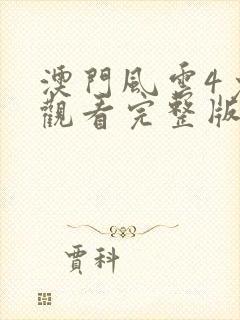 澳門風雲4
觀看完整版
賈科